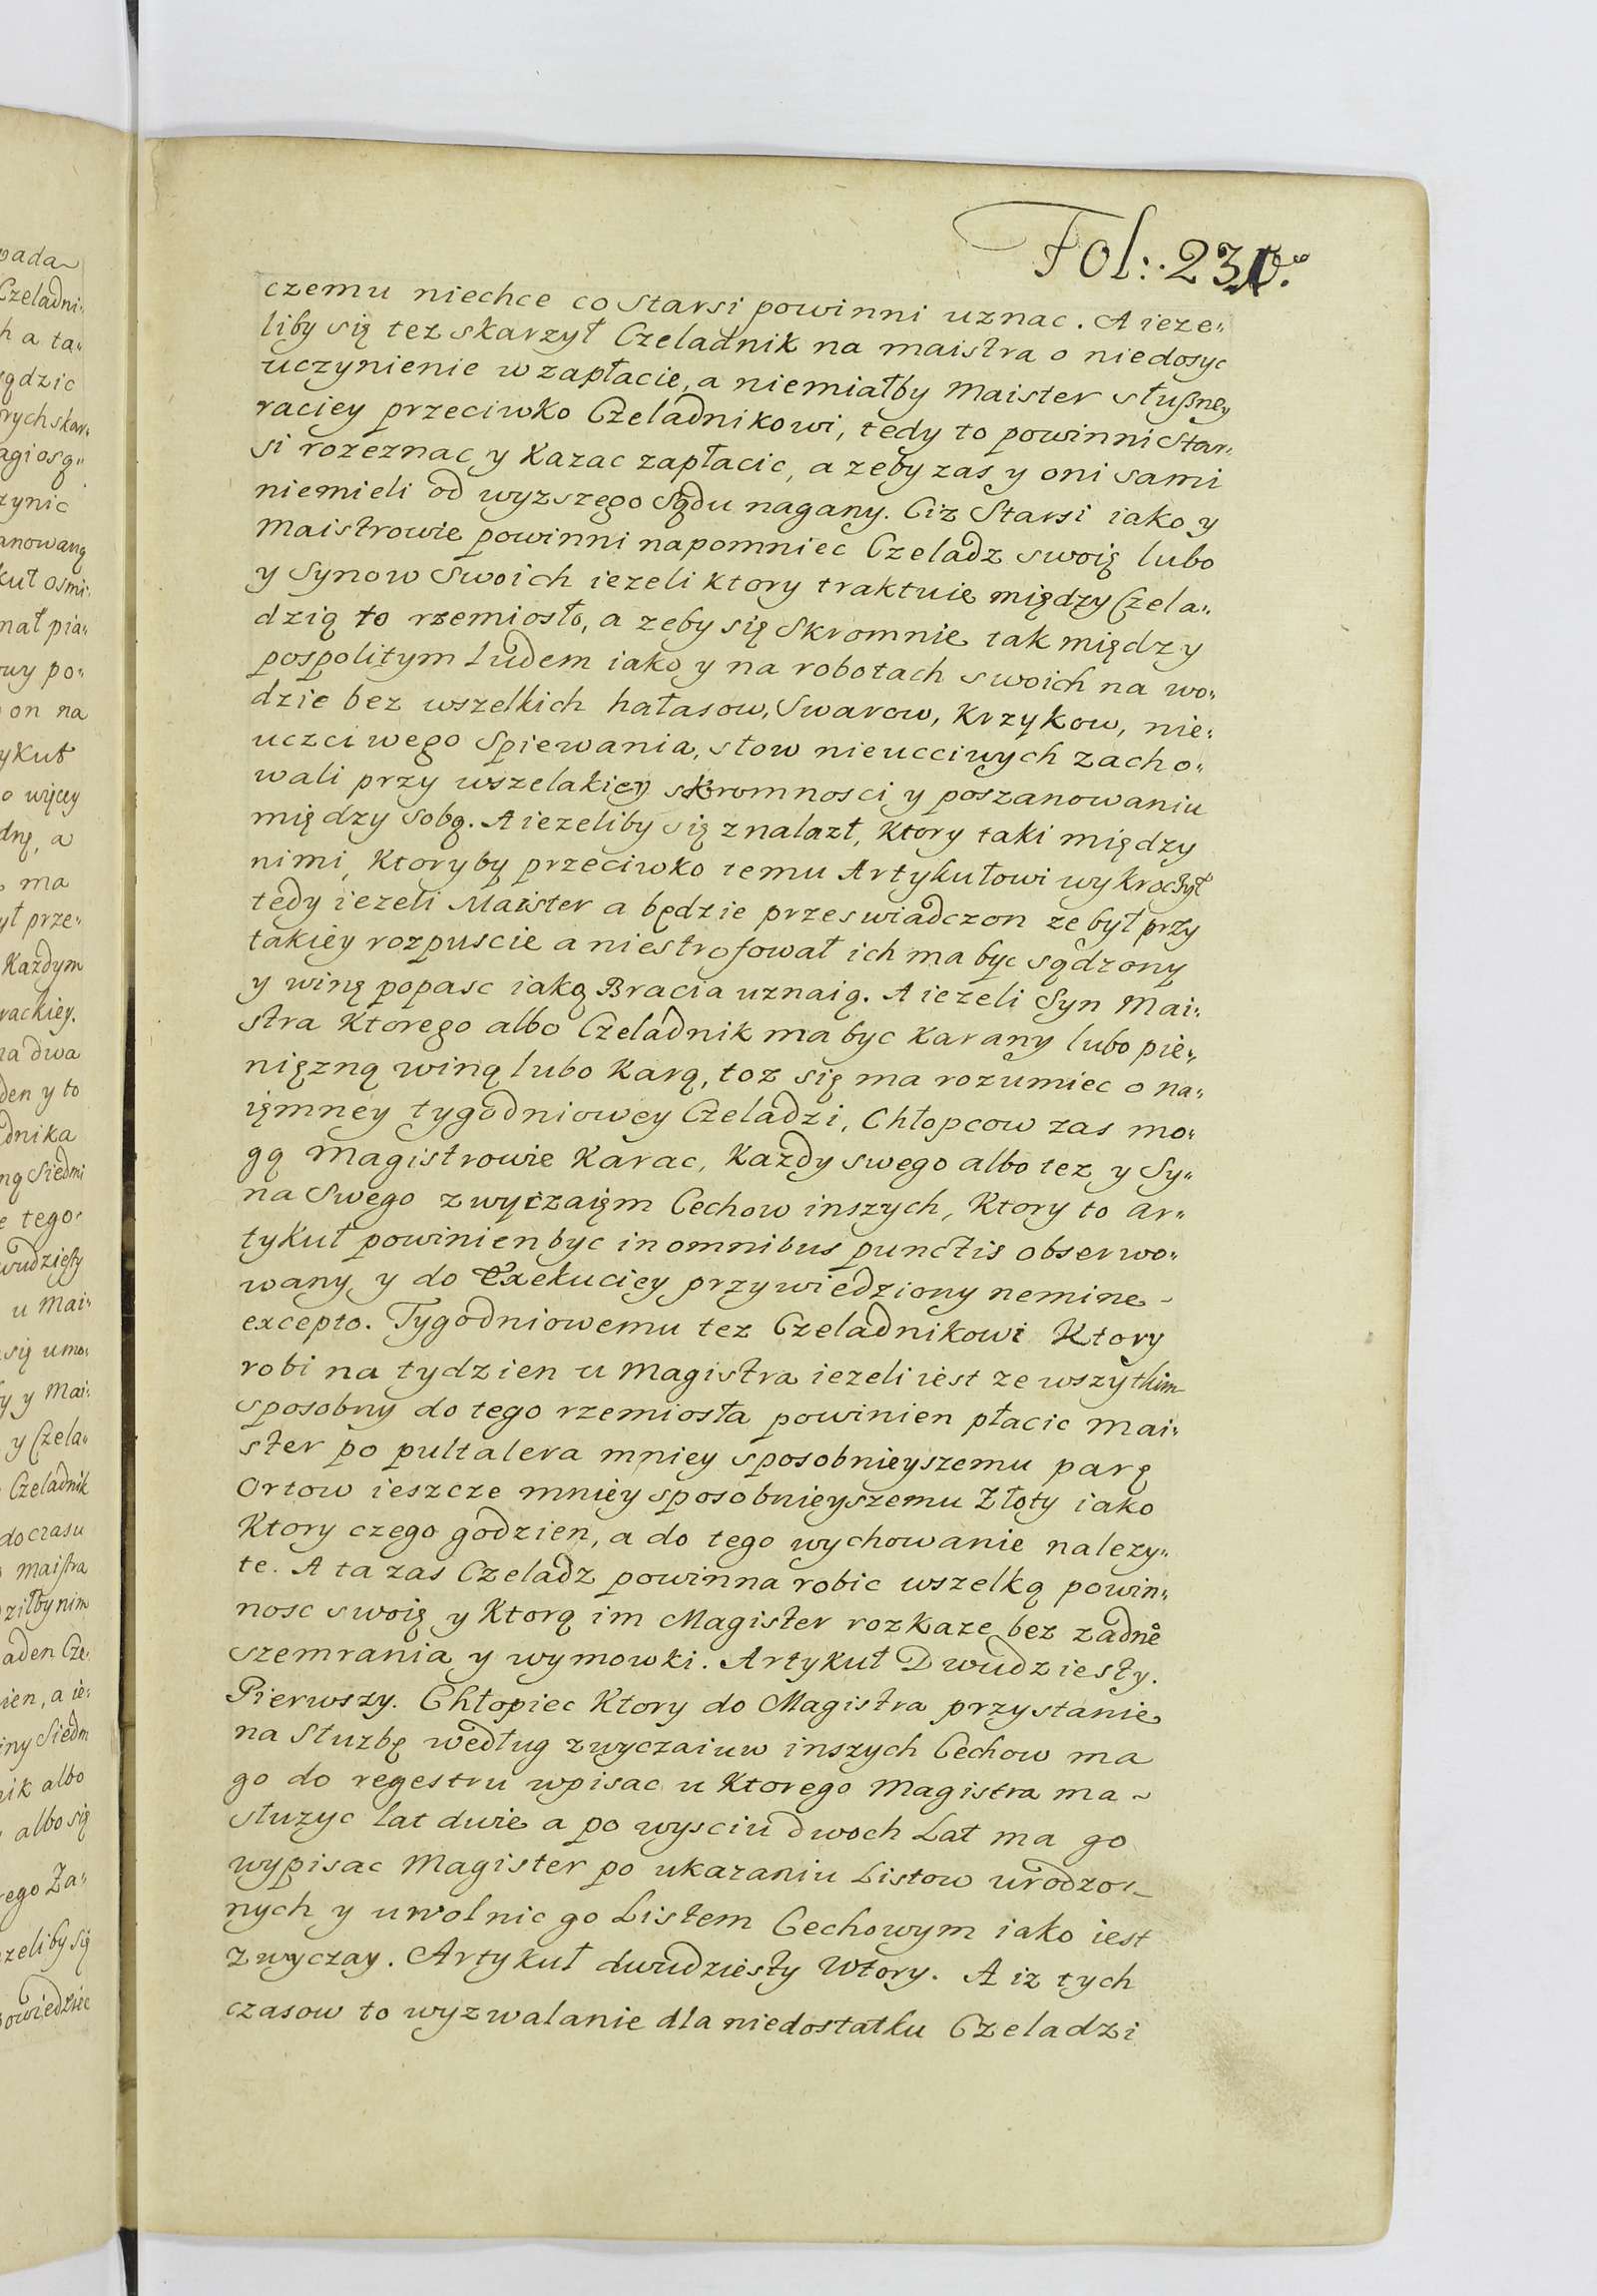 Fol:. 231.
czemu niechce co Starsi powinni uznac. A ieze„
liby się tez skarzył Czeladnik na maistra o niedosyc
uczynienie w zapłacie, a niemiałby Maister słußney
raciey przeciwko Czeladnikowi, tedy to powinni Star„
si rozeznac y Kazac zapłacic, a zeby zas y oni sami
niemieli od wyzszego Sądu nagany. Ciz Starsi iako y
Maistrowie powinni napomniec Czeladz swoię lubo
y Synow Swoich iezeli ktory traktuie między Czela„
dzią to rzemiosło, a zeby się Skromnie tak między
pospolitym Ludem iako y na robotach swoich na wo„
dzie bez wszelkich hałasow, Swarow, Krzykow, nie„
uczciwego Spiewania, słow nieucciwych zacho„
wali przy wszelakiey skromnosci y poszanowaniu
między Sobą. A iezeliby się znalazł, Ktory taki między
nimi, Ktoryby przeciwko temu Artykułowi wykroczył
tedy iezeli Maister a będzie przeswiadczon ze był przy
takiey rozpuscie a niestrofował ich ma byc sądzony
y winę popasc iaką Bracia uznaią. A iezeli Syn Mai„
stra Ktorego albo Czeladnik ma byc Karany lubo pie„
nięzną winą lubo Karą, toz się ma rozumiec o na„
ięmney tygodniowey Czeladzi, Chłopcow zas mo„
gą Magistrowie Karac, Kazdy swego albo tez y Sy„
na Swego zwyczaięm Cechow inszych, Ktory to ar„
tykuł powinien byc in omnibus punctis obserwo„
wany y do Exekuciey przywiedziony nemine
excepto. Tygodniowemu tez Czeladnikowi Ktory
robi na tydzien u Magistra iezeli iest ze wszytkim
sposobny do tego rzemiosła powinien płacic Mai„
ster po pultalera mniey sposobnieyszemu parę
Ortow ieszcze mniey sposobnieyszemu Złoty iako
Ktory czego godzien, a do tego wychowanie nalezy„
te. A ta zas Czeladz powinna robic wszelką powin„
nosc swoię y Ktorą im Magister rozkaze bez zadne
szemrania y wymowki. Artykuł Dwudziesty.
Pierwszy. Chłopiec Ktory do Magistra przystanie
na Słuzbę według zwyczaiuw inszych Cechow ma
go do regestru wpisac u Ktorego Magistra ma
słuzyc lat dwie a po wysciu dwoch Lat ma go
wypisac Magister po ukazaniu Listow urodzo„
nych y uwolnic go Listem Cechowym iako iest
zwyczay. Artykuł dwudziesty Wtory. A iz tych
czasow to wyzwalanie dla niedostatku Czeladzi